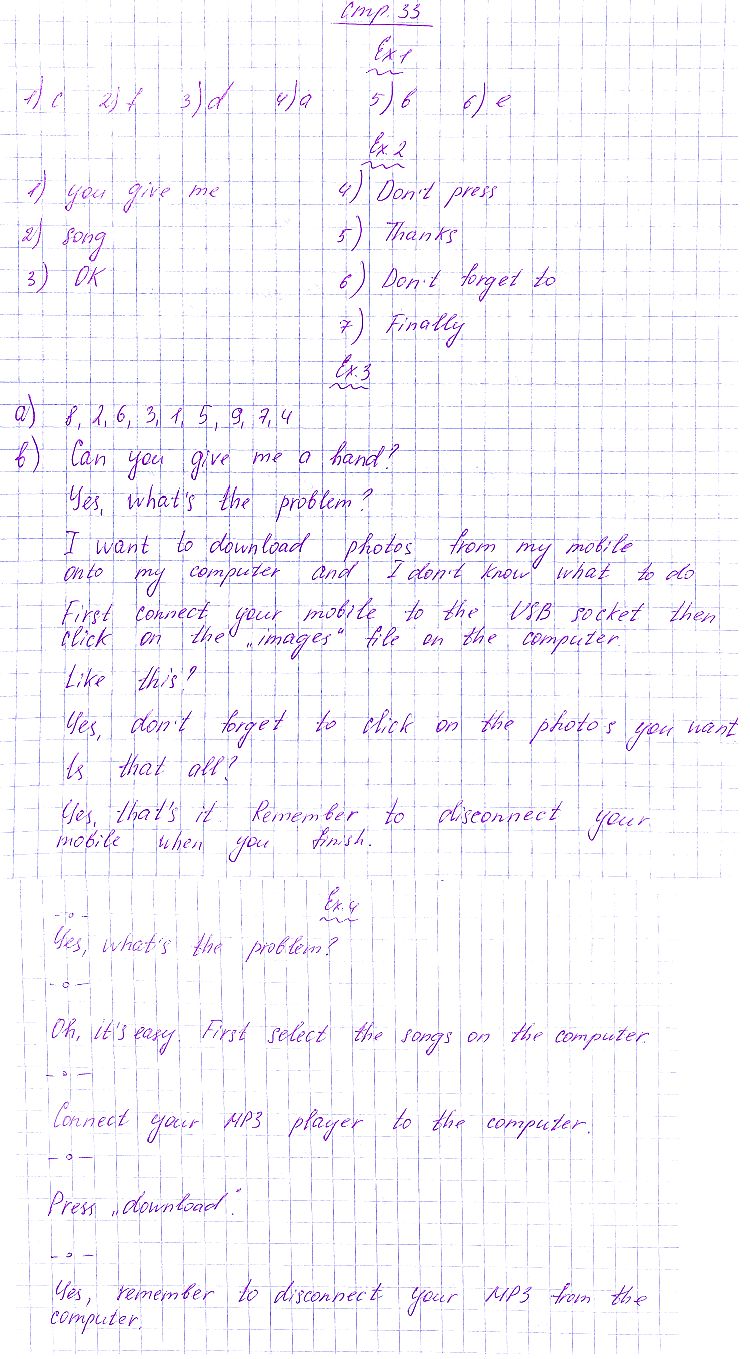 Стр. 33
Ex 1
1) c 2) f 3) d 4) a 5) b 6) e
Ex. 2
1) you give me 4) Don't press
2) song 5) Thanks
3) OK 6) Don't forget to
7) Finally
Ex. 3
a) 8, 2, 6, 3, 1, 5, 9, 7, 4
b) Can you give me a hand?
Yes, what's the problem?
I want to download photos from my mobile
onto my computer and I don't know what to do
First connect your mobile to the USB socket then
click on the „images“ file on the computer
Like this?
Yes, don't forget to click on the photos you want
Is that all?
Yes, that's it. Remember to disconnect your
mobile when you finish.
Ex. 4
-o-
Yes, what's the problem?
-o-
Oh, it's easy. First select the songs on the computer.
-o-
Connect your MP3 player to the computer.
-o-
Press „download“.
-o-
Yes, remember to disconnect your MP3 from the
computer.